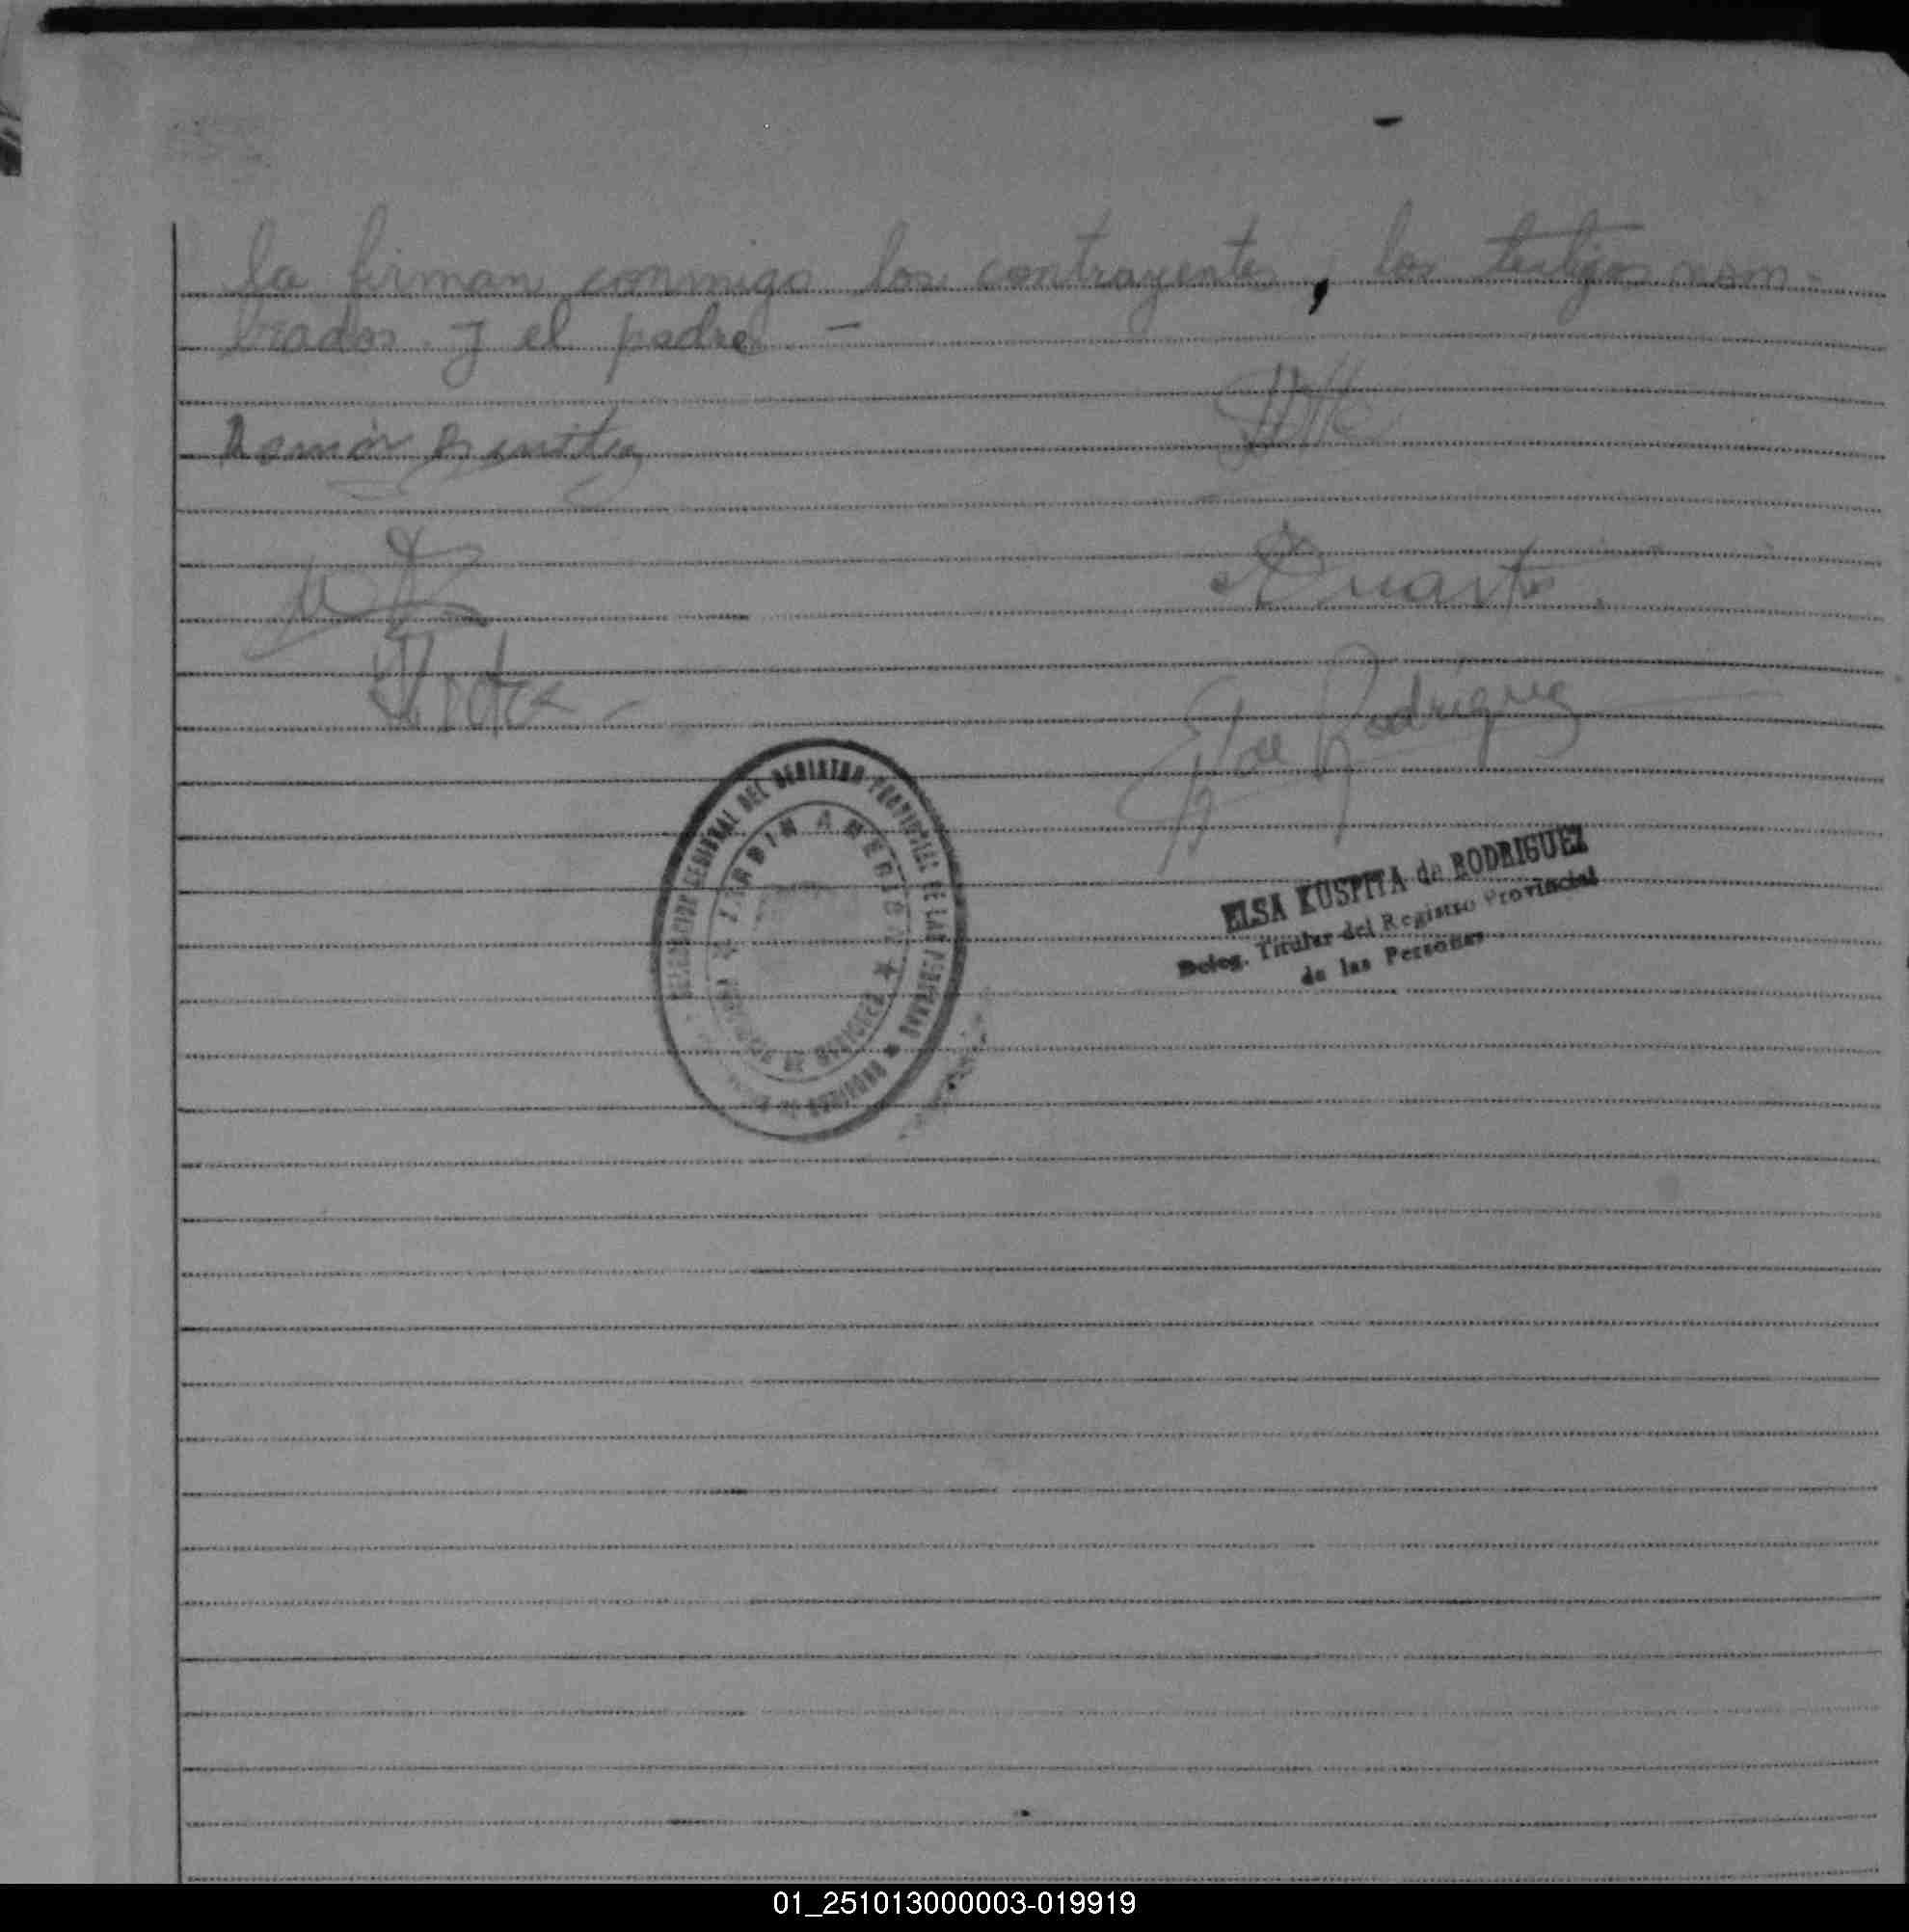 la firman conmigo los contrayentes, los testigos nom-
brados. y el padre. —
Ramón Benitez
Duarte.
E K de Rodriguez
DELEGACION SECCIONAL DEL REGISTRO PROVINCIAL DE LAS PERSONAS
JARDIN AMERICA
PROVINCIA DE MISIONES
ELSA KUSPITA de RODRIGUEZ
Deleg. Titular del Registro Provincial
de las Personas
01_251013000003-019919